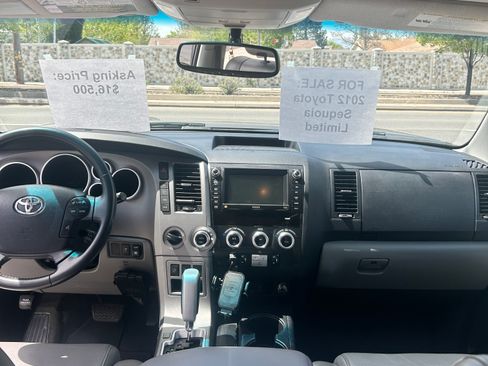 Asking Price:
$16,500
FOR SALE:
2012 Toyota
Sequoia
Limited